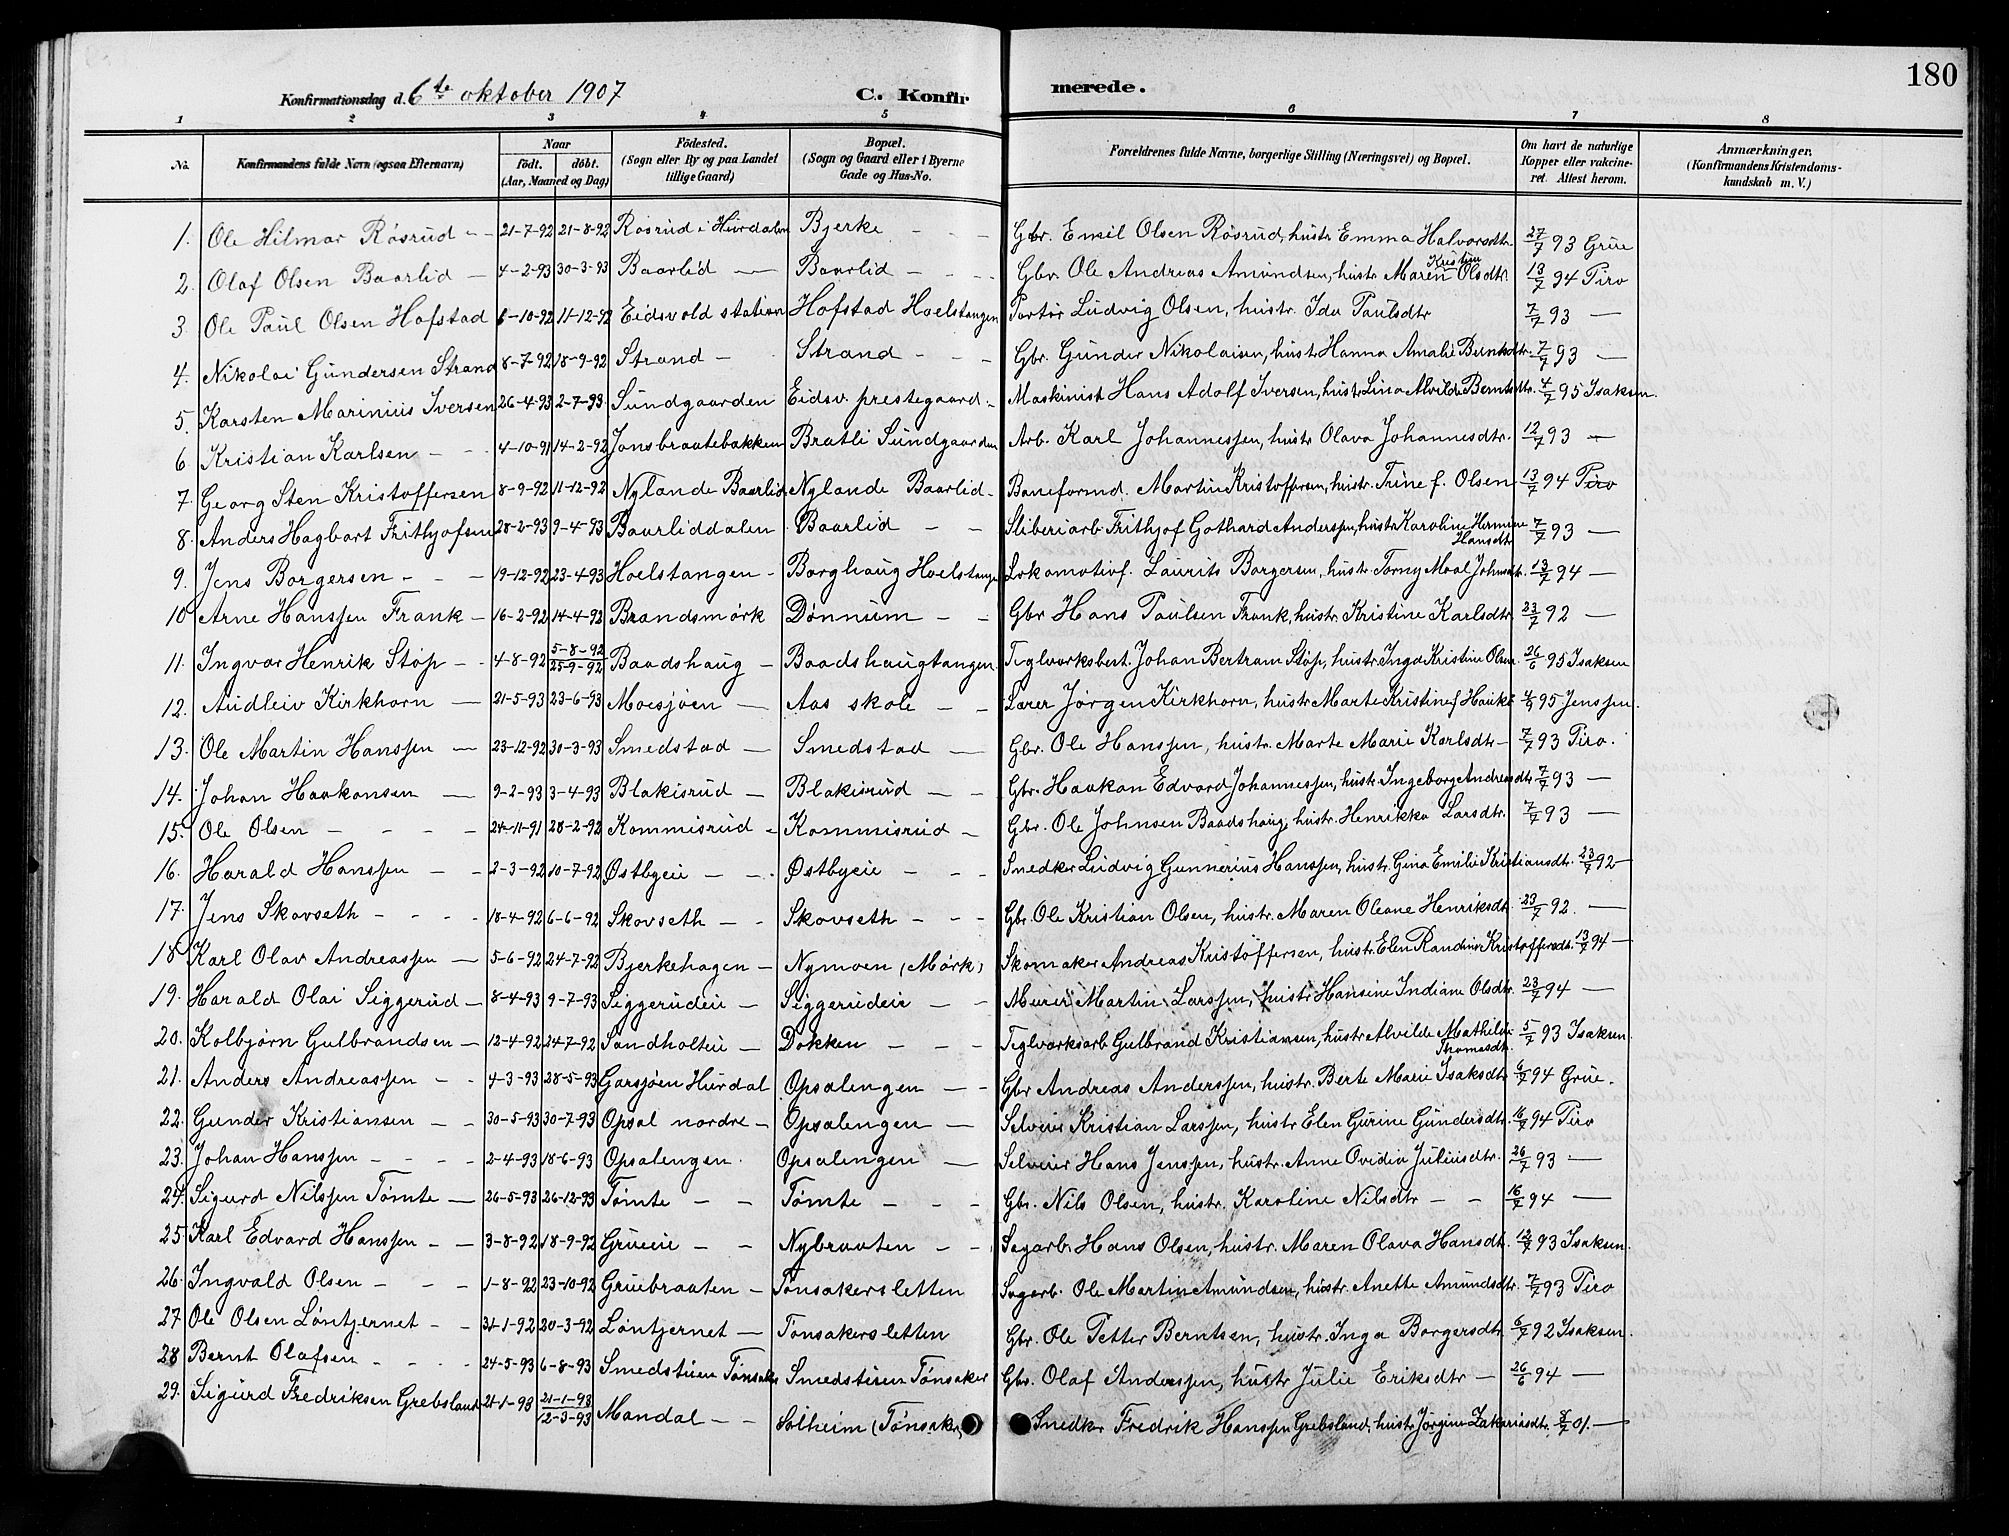 180
Konfirmationsdag d. 6te oktober 1907 C. Konfir merede.
1 2 3 4 5 6 7 8
No. Konfirmandens fulde Navn (ogsaa Efternavn) Naar født. døbt. (Aar, Maaned og Dag) Födested. (Sogn eller By og paa Landet tillige Gaard) Bopæl. (Sogn og Gaard eller i Byerne Gade og Hus-No. Forældrenes fulde Navne, borgerlige Stilling (Næringsvei) og Bopæl. Om havt de naturlige Kopper eller vakcineret. Attest herom. Anmærkninger. (Konfirmandens Kristendomskundskab m. V.)
1. Ole Hilmar Røsrud 21-7-92 21-8-92 Røsrud i Hurdalen Bjerke Gbr. Emil Olsen Røsrud, hustr. Emma Halvorsdtr. 27/7 93 Grue
2. Olaf Olsen Baarlid 4-2-93 30-3-93 Baarlid Baarlid Gbr. Ole Andreas Amundsen, hustr. Maren Kristine Olsdtr. 13/7 94 Tiro
3. Ole Paul Olsen Hofstad 6-10-92 11-12-92 Eidsvold station Hofstad Hoelstangen Portør Ludvig Olsen, hustr. Ida Paulsdtr 7/7 93 —
4. Nikolai Gundersen Strand 8-7-92 18-9-92 Strand Strand Gbr. Gunder Nikolaisen, hustr Hanna Amalie Berntsdtr. 7/7 93 —
5. Karsten Marinius Iversen 26-4-93 2-7-93. Sundgaarden Eidsv. prestegaard. Maskinist Hans Adolf Iversen, hustr Lina Alvilde Berntsdtr. 4/7 95 Isaksen.
6 Kristian Karlsen 4-10-91 14-2-92 Jonsbraatebakken Bratli Sundgaarden Arb. Karl Johannessen, hustr Olava Johannesdtr. 12/7 93 —
7 Georg Sten Kristoffersen 8-9-92 11-12-92 Nylande Baarlid Nylande Baarlid Baneformd. Martin Kristoffersen, hustr. Trine f. Olsen 13/7 94 Tiro
8. Anders Hagbart Frithjofsen 28-2-93 9-4-93 Baarliddalen Baarlid Sliberiarb. Frithjof Gothard Anderssen, hustr Karoline Hermine Hansdtr 7/7 93 —
9. Jens Borgersen 19-12-92 23-4-93 Hoelstangen Borghaug Hoelstangen Lokomotivf. Laurits Borgersen, hustr. Torny Moal Johnsdtr. 13/7 94 —
10 Arne Hanssen Frank 16-2-92 14-4-92 Brandsmørk Dønnum Gbr Hans Paulsen Frank, hustr. Kristine Karlsdtr. 23/7 92 —
11. Ingvar Henrik Støp 4-8-92 5-8-92 25-9-92 Baadshaug Baadshaugtangen. Teglverksbest. Johan Bertram Støp, hustr Inga Kristine Olsen. 26/6 95 Isaksen
12. Audleiv Kirkhorn 21-5-93 23-6-93 Moesjøen Aas skole Lærer Jørgen Kirkhorn, hustr Marte Kristine f. Hauke 95 Jenssen.
13. Ole Martin Hanssen 23-12-92 30-3-93 Smedstad Smedstad Gbr. Ole Hanssen, hustr. Marte Marie Karlsdtr 7/7 93 Tiro.
14. Johan Haakonsen 9-2-93 3-4-93 Blakisrud Blakisrud Gbr. Haakon Edvard Johannessen, hustr Ingeborg Andreasdtr 7/7 93 —
15. Ole Olsen 24-11-91 28-2-92 Kommisrud Kommisrud Gbr. Ole Johnsen Baadshaug, hustr. Henrikka Larsdtr. 7/7 93 —
16. Harald Hanssen 2-3-92 10-7-92 Østbyeie Østbyeie Snedker Ludvig Gunnerius Hanssen, hustr. Gina Emilie Kristiansdtr. 23/7 92 —
17. Jens Skovseth 18-4-92 6-6-92 Skovseth Skovseth Gbr. Ole Kristian Olsen, hustr. Maren Oleane Henriksdtr 23/7 92. —
18 Karl Olav Andreassen 5-6-92 24-7-92 Bjerkehagen Nymoen (Mørk) Skomaker Andreas Kristoffersen, hustr Elen Randine Kristoffersdtr. 13/7 94 —
19. Harald Olai Siggerud 8-4-93 9-7-93 Siggerudeie Siggerudeie Murer Martin Larssen, hustr Hansine Indiane Olsdtr. 23/7 94 —
20. Kolbjørn Gulbrandsen 12-4-92 24-7-92 Sandholteie Dokken Teglverksarb Gulbrand Kristiansen, hustr Alvilde Mathilde Thomasdtr. 5/7 93 Isaksen.
21. Anders Andreassen 4-3-93 28-5-93 Garsjøen Hurdal Opsalengen Gbr Andreas Anderssen, hustr. Berte Marie Isaksdtr 6/7 94 Grue.
22. Gunder Kristiansen 30-5-93 30-7-93 Opsal nordre Opsalengen Selveier Kristian Larssen, hustr Elen Gurine Gundersdtr. 16/7 94 Tiro
23. Johan Hanssen 2-4-93 18-6-93 Opsalengen. Opsalengen Selveier Hans Jenssen, hustr. Anne Ovidia Juliusdtr. 26/7 93 —
24. Sigurd Nilssen Tømte 26-5-93 26-12-93 Tømte Tømte Gbr. Nils Olsen, hustr. Karoline Nilsdtr 16/7 94 —
25. Karl Edvard Hanssen 3-8-92 18-9-92 Grueeie Nybraaten Sagarb. Hans Olsen, hustr. Maren Olava Hansdtr. 12/7 93 Isaksen.
26. Ingvald Olsen 1-8-92 23-10-92 Gruebraaten Tønsakersletten Sagarb. Ole Martin Amundsen, hustr. Anette Amundsdtr. 7/7 93 Tiro
27 Ole Olsen Løntjernet 31-1-92 20-3-92 Løntjernet Tønsakersletten Gbr. Ole Petter Berntsen, hustr. Inga Borgersdtr. 6/7 92 Isaksen.
28 Bernt Olafsen 24-5-93 6-8-93 Smedstuen Tønsaker Smedstuen Tønsaker Gbr. Olaf Anderssen, hustr Julie Eriksdtr 26/6 94 —
29. Sigurd Fredriksen Grebsland 21-1-93 21-1-93 12-3-93 Mandal Solheim (Tønsaker) Snedker Fredrik Hanssen Grebsland, hustr Jørgine Zakariasdtr. 01. —